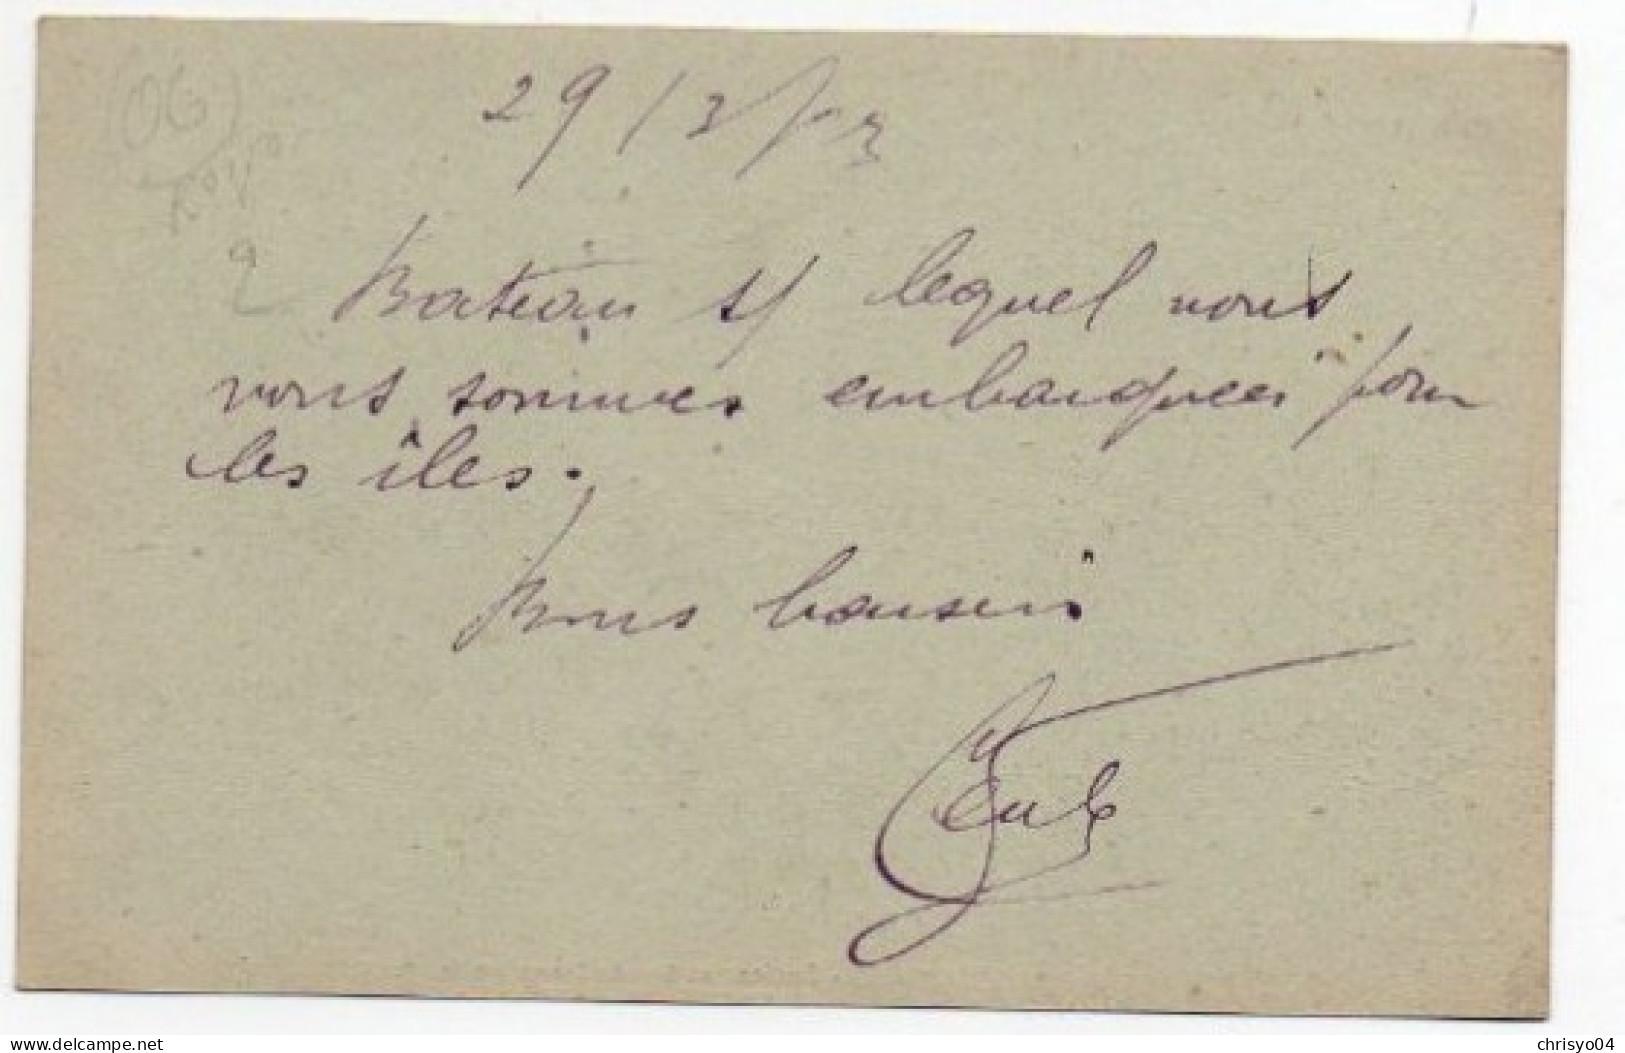 (06)
2
29/3/13
Bateau s/ lequel nous
nous sommes embarqués pour
les îles.
Bons baisers
delcampe.net
chrisyo04